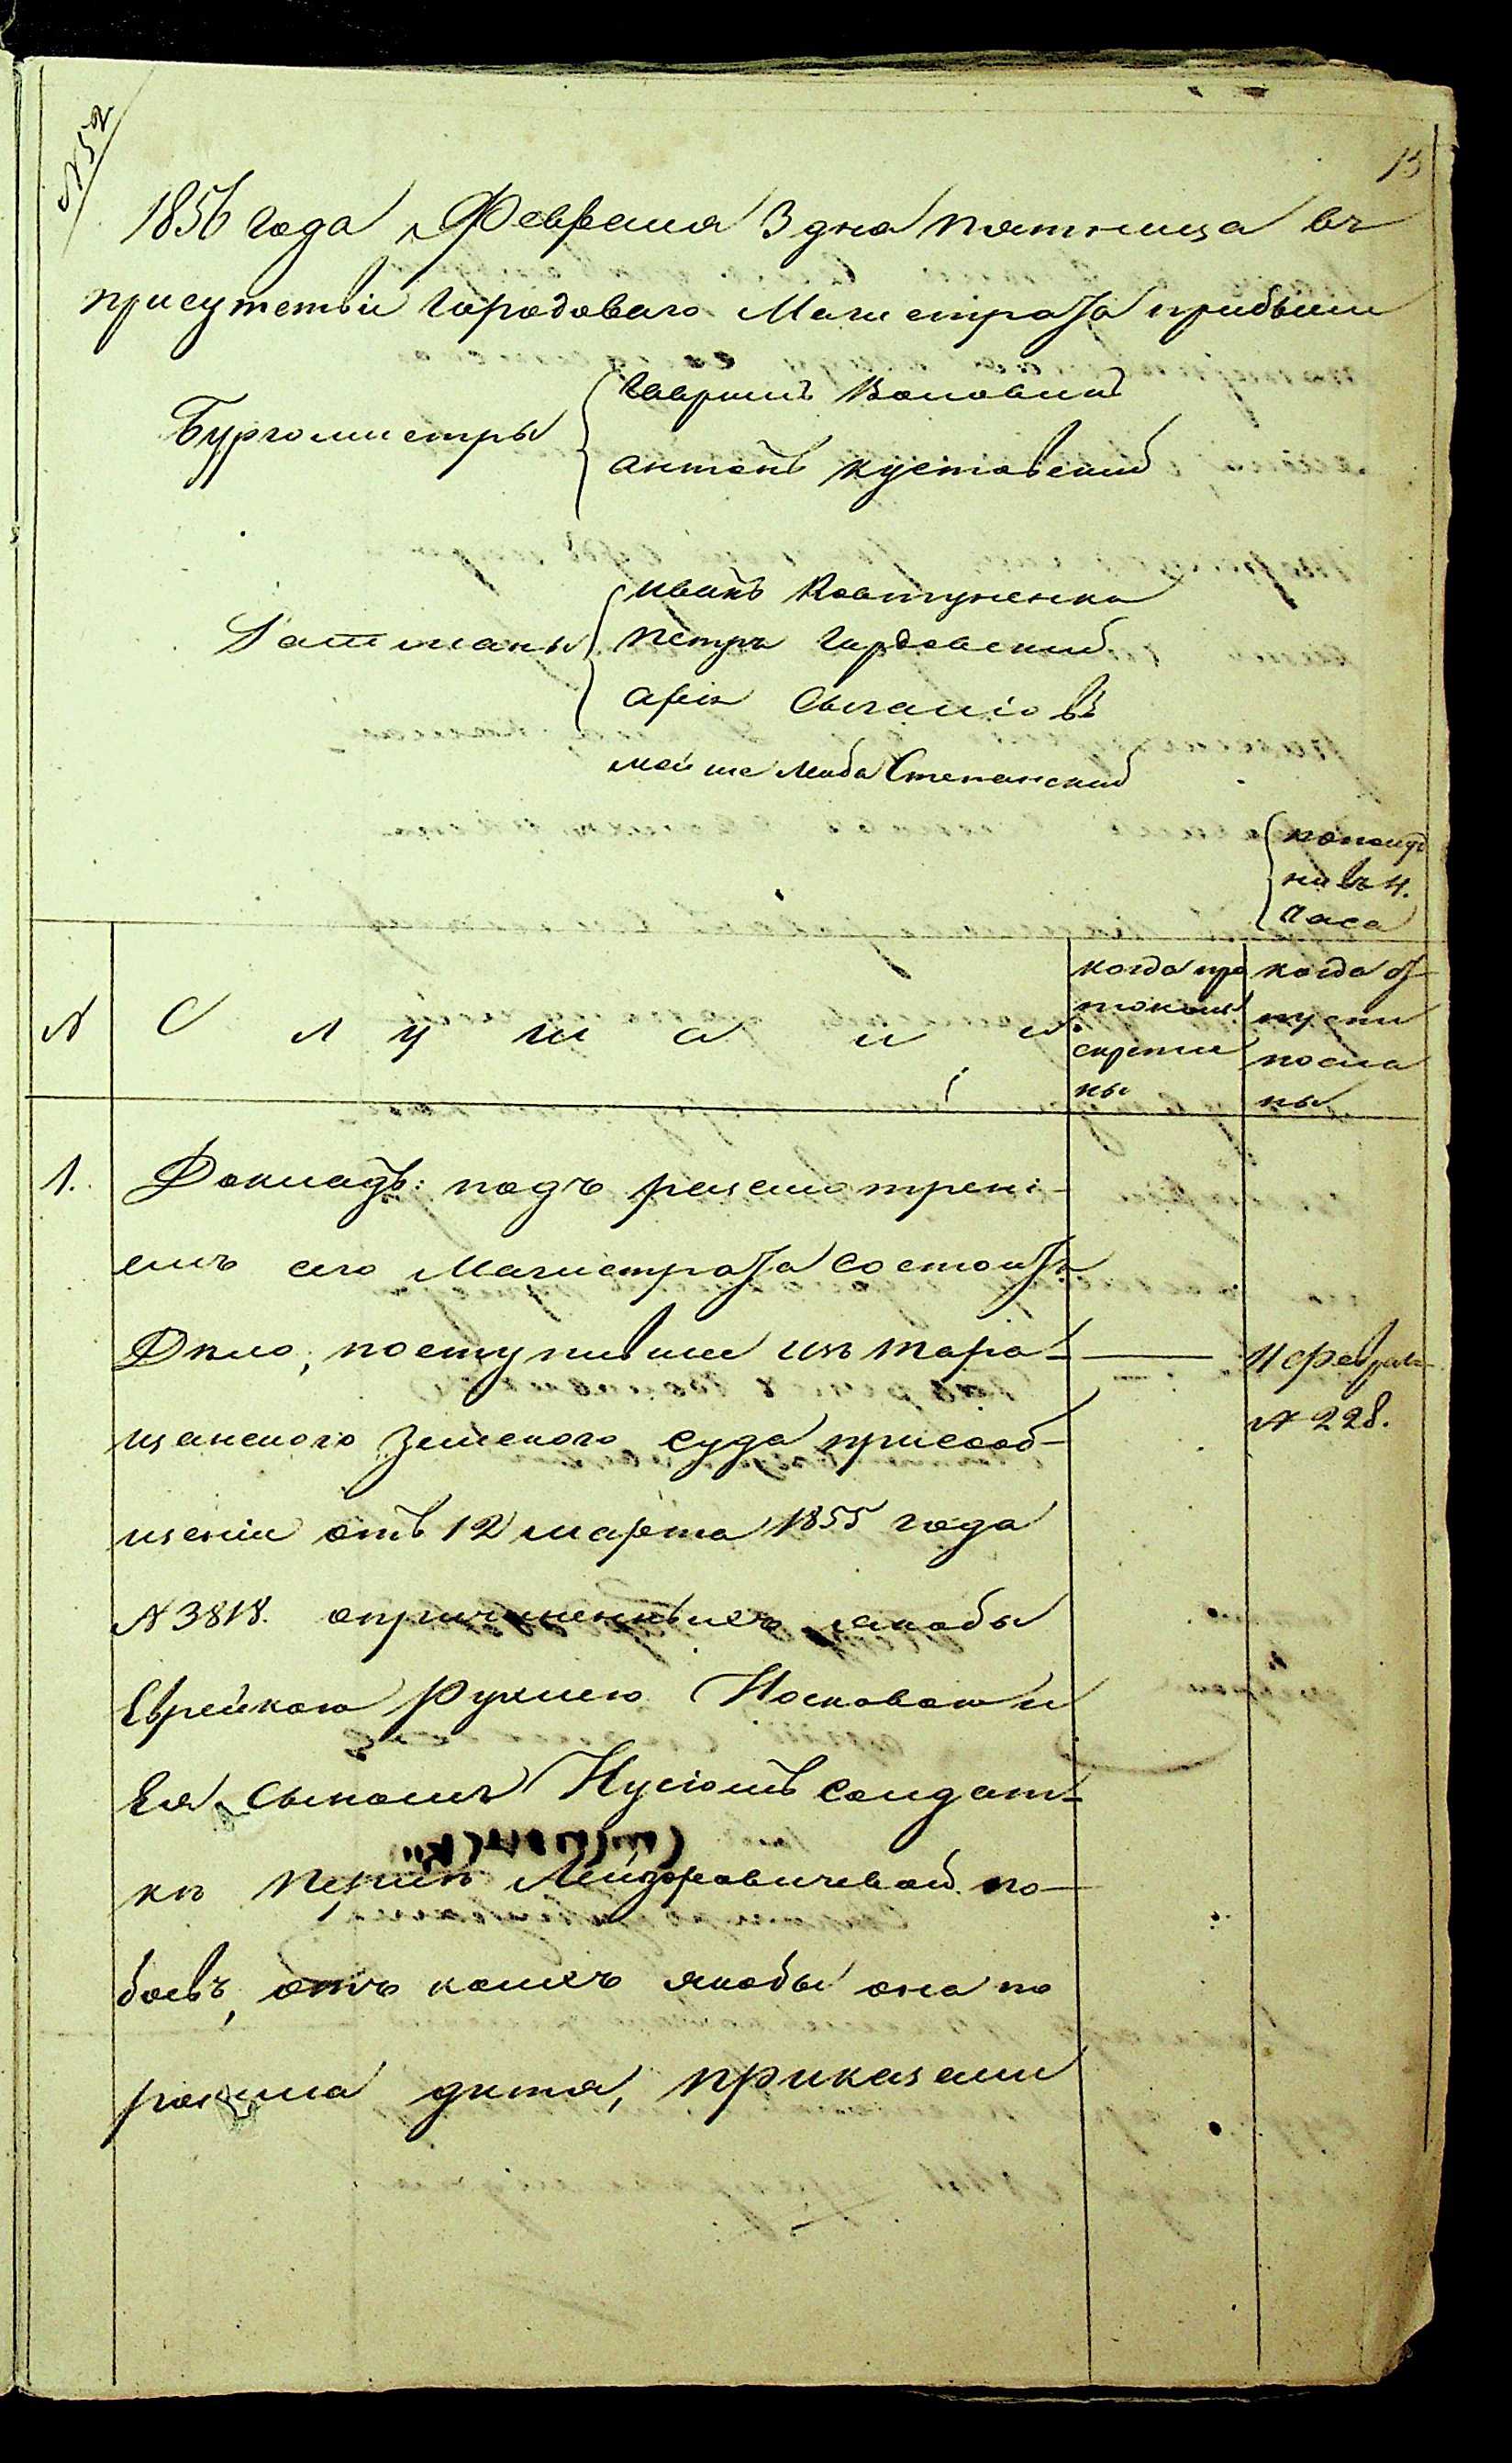 13
1856 года Февраля 3 дня пятница въ
присутствіи городоваго Магистрата прибыли
Бургомистры
Гаврилъ Воловикъ
антонъ кустовскій
Ратманы
иванъ Ковтуненко
петръ Гордовскій
аріи
мошко лейба Степанскій
пополуд
ни въ 4.
часа
№
Слушали
когда про
токолы
скрепле
ны
когда от
пуски
посла
ны
1. Докладъ: подъ разсмотрені-
емъ сего Магистрата состоитъ
Дело, поступившее изъ тара-
щанского Земского суда присооб-
щеніи отъ 12 марта 1855 года
№ 3818. опричиненныхъ якобы
Еврейкою Рухлею Носковою и
Ея Сыномъ Нусіомъ солдат-
ке перле Лейзеровичевой по-
боевъ, отъ коихъ якобы она по
ронила дитя, приказали
11 февраля
№ 228.